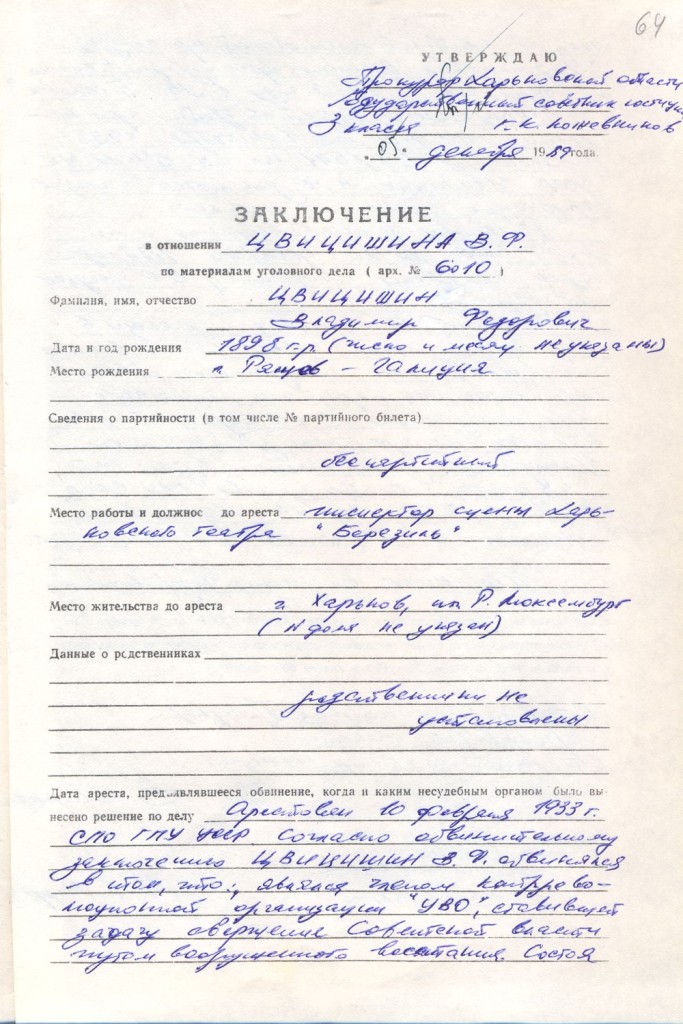 64
УТВЕРЖДАЮ
Прокурор Харьковской области
Государственный советник юстиции
3 класса Г.К. Кожевников
"05" декабря 1989 года.
ЗАКЛЮЧЕНИЕ
в отношении ЦВИЦИШИНА В.Ф.
по материалам уголовного дела ( арх. № 6010 )
Фамилия, имя, отчество ЦВИЦИШИН
Владимир Федорович
Дата и год рождения 1898 г.р. (число и месяц не указаны)
Место рождения Галиция
Сведения о партийности (в том числе № партийного билета)
беспартийный
Место работы и должнос до ареста инспектор сцены Харь-
ковского театра "Березиль"
Место жительства до ареста г. Харьков, пл. Р. Люксембург
(N дома не указан)
Данные о родственниках
родственники не
установлены
Дата ареста, предъявлявшееся обвинение, когда и каким несудебным органом было вы-
несено решение по делу Арестован 10 февраля 1933 г.
СПО ГПУ УССР Согласно обвинительному
заключению ЦВИЦИШИН В.Ф. обвинялся
в том, что: являлся членом контррево-
люционной организации "УВО", ставившей
задачу свержение Советской власти
путем вооруженного восстания. Состоя